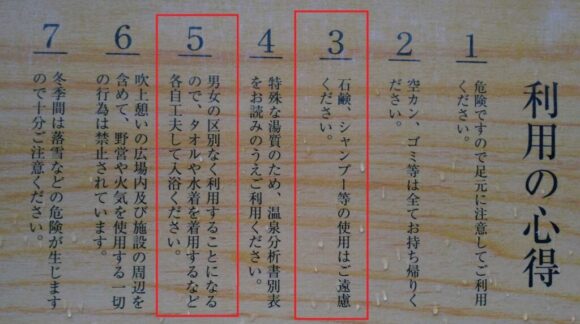 利用の心得
1
危険ですので足元に注意してご利用
ください。
2
空カン、ゴミ等は全てお持ち帰りく
ださい。
3
石鹸、シャンプー等の使用はご遠慮
ください。
4
特殊な湯質のため、温泉分析書別表
をお読みのうえご利用ください。
5
男女の区別なく利用することになる
ので、タオルや水着を着用するなど
各自工夫して入浴ください。
6
吹上憩いの広場内及び施設の周辺を
含めて、野営や火気を使用する一切
の行為は禁止されています。
7
冬季間は落雪などの危険が生じます
ので十分ご注意ください。